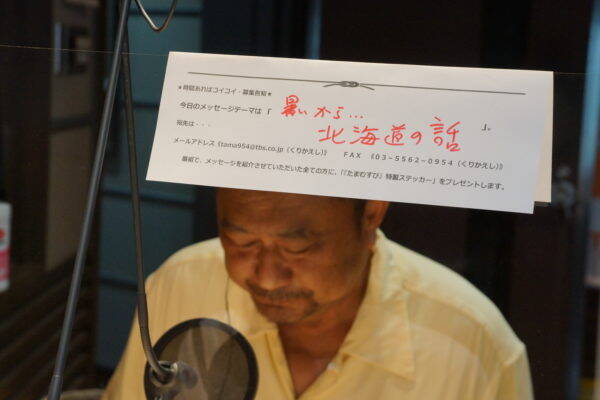 ★時間あればコイコイ・募集告知★
今日のメッセージテーマは「 暑いから…
北海道の話 」。
宛先は・・・
メールアドレス《tama954@tbs.co.jp（くりかえし）》 FAX 《03-5562-0954（くりかえし）》
番組で、メッセージを紹介させていただいた全ての方に、『「たまむすび」特製ステッカー』をプレゼントします。